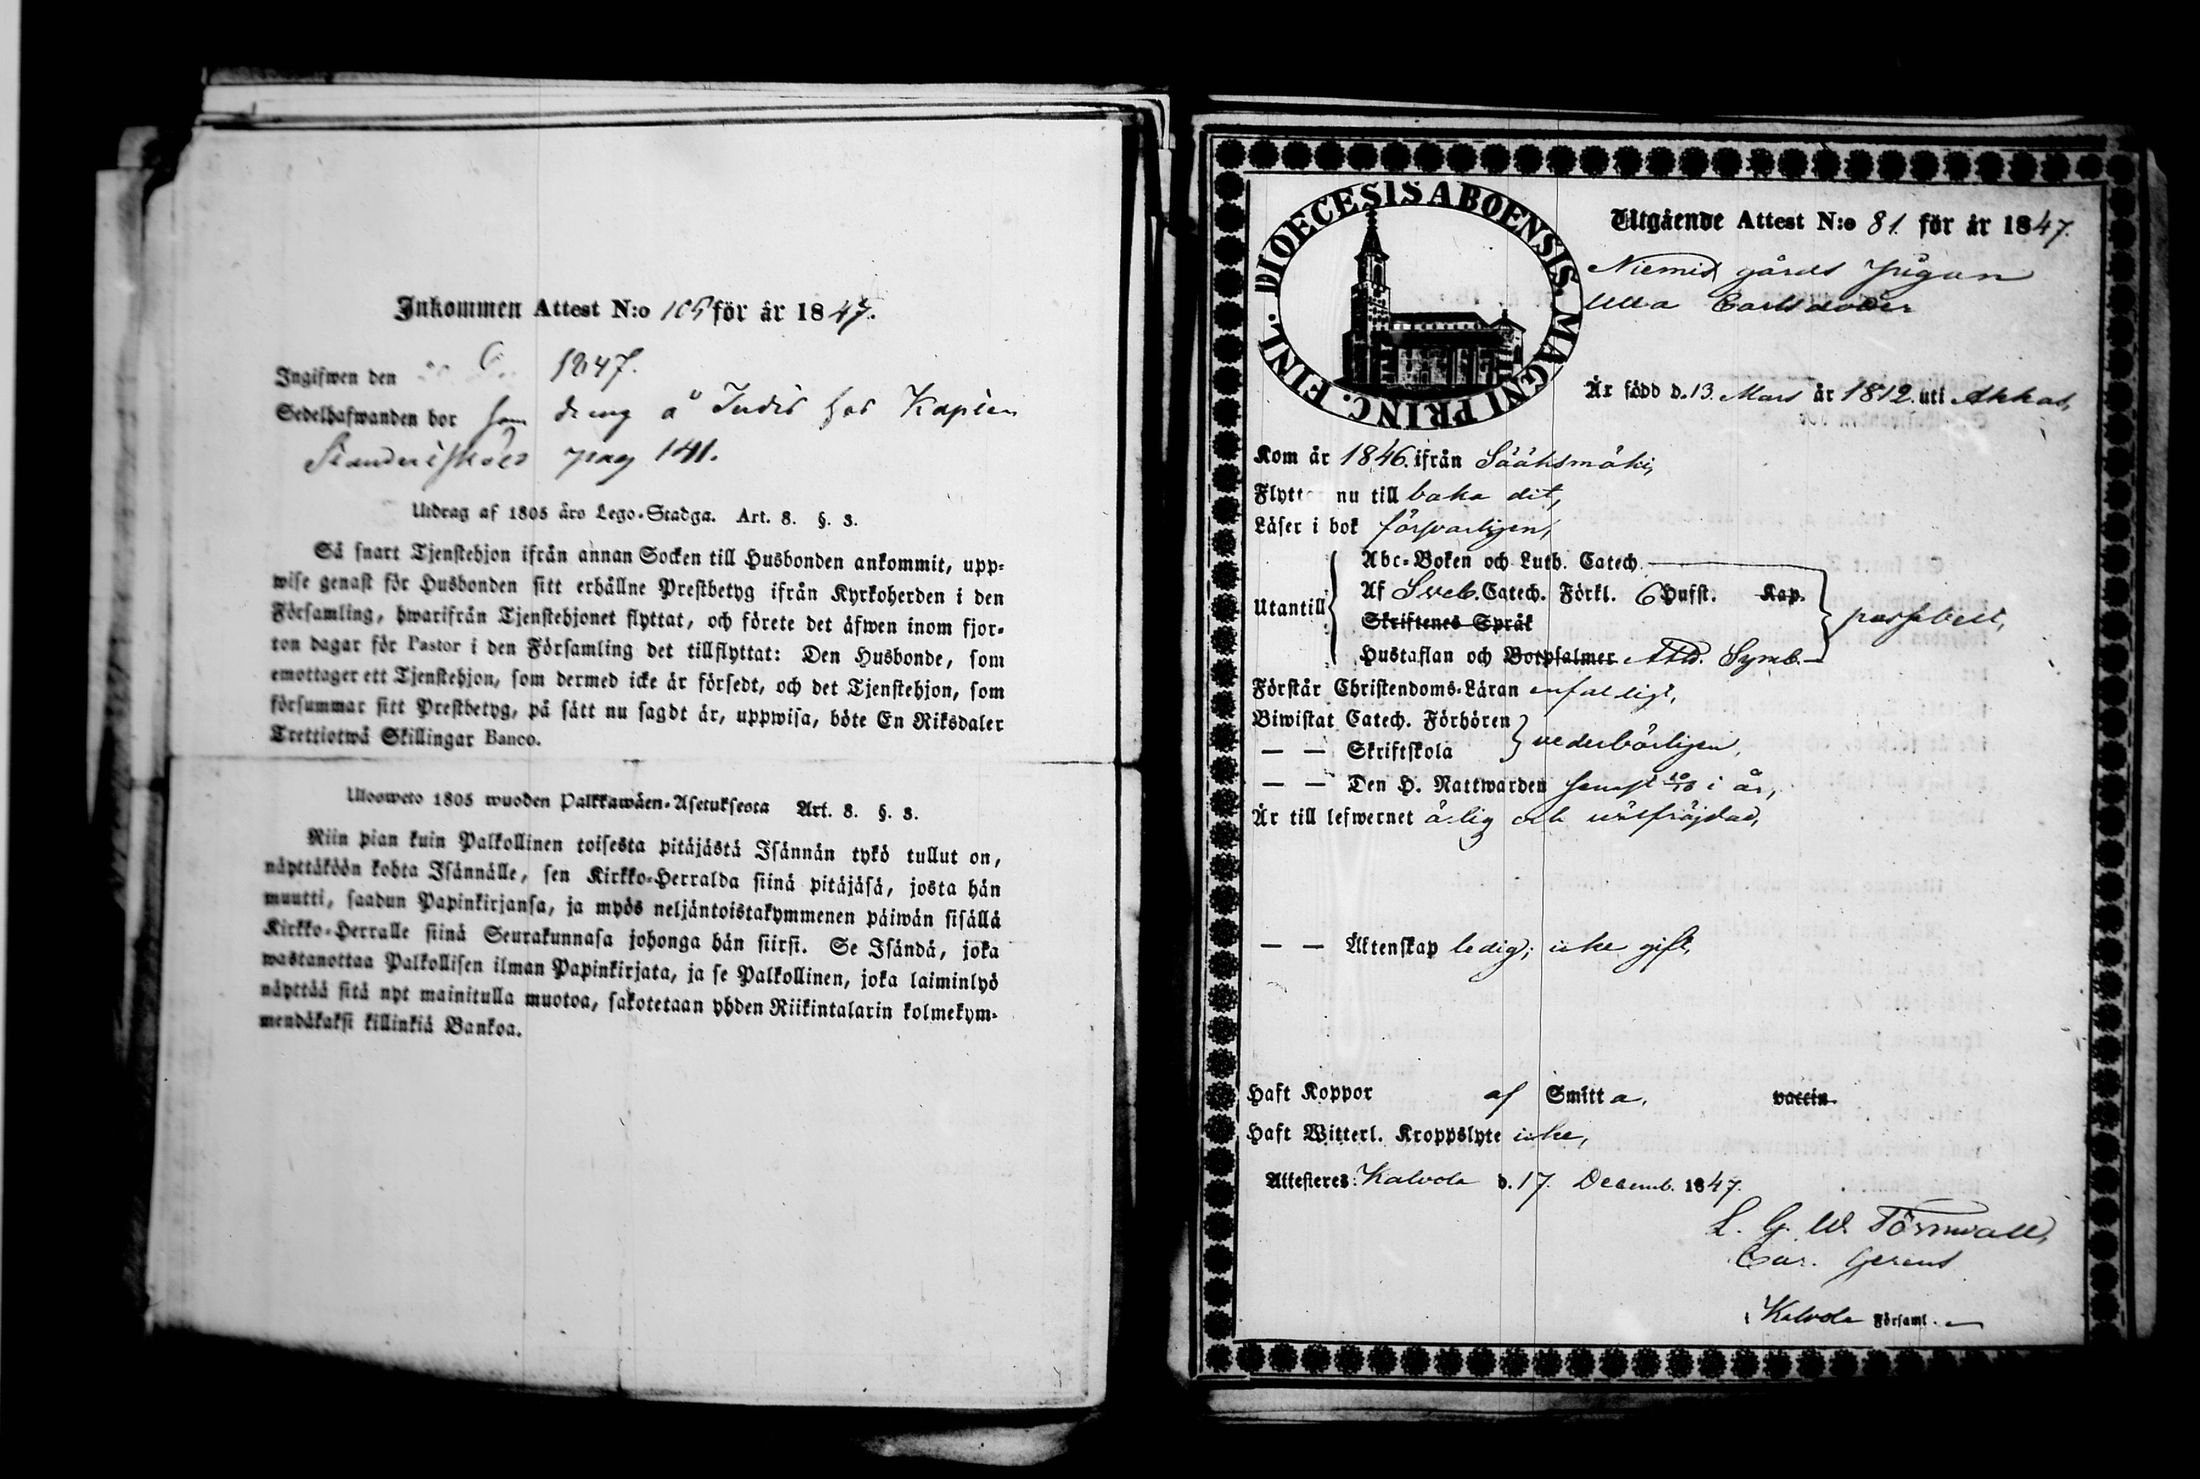 Inkommen Attest N:o 105 för år 1847.
Ingifwen den 1847.
Sedelhafwanden bor som á Indis hos
pag 141.
Utdrag af 1805 års Lego-Stadga. Art. 8. §. 3.
Så snart Tjenstehjon ifrån annan Socken till Husbonden ankommit, upp-
wise genast för Husbonden sitt erhållne Prestbetyg ifrån Kyrkoherden i den
Församling, hwarifrån Tjenstehjonet flyttat, och förete det äfwen inom fjor-
ton dagar för Pastor i den Församling det tillflyttat: Den Husbonde, som
emottager ett Tjenstehjon, som dermed icke är försedt, och det Tjenstehjon, som
försummar sitt Prestbetyg, på sätt nu sagdt är, uppwisa, böte En Riksdaler
Trettiotwå Skillingar Banco.
Ulosweto 1805 wuoden Palkkawäen-Asetuksesta Art. 8. §. 3.
Niin pian kuin Palkollinen toisesta pitäjästä Isännän tykö tullut on,
näyttäköön kohta Isännälle, sen Kirkko-Herralda siinä pitäjäsä, josta hän
muutti, saadun Papinkirjansa, ja myös neljäntoistakymmenen päiwän sisällä
Kirkko-Herralle siinä Seurakunnasa johonga hän siirsi. Se Isändä, joka
wastanottaa Palkollisen ilman Papinkirjata, ja se Palkollinen, joka laiminlyö
näyttää sitä nyt mainitulla muotoa, sakotetaan yhden Riikintalarin kolmekym-
mendäkaksi killinkiä Bankoa.
DIOECESIS ABOENSIS. MAGNI PRINC. FINL.
Utgående Attest N:o 81 för år 1847.
Niemis gårds Pigan
Ulla Carlsdoter
Är född d. 13 Mars år 1812 uti Akkas,
Kom år 1846 ifrån Sääksmäki,
Flyttar nu till baka dit,
Läser i bok försvarligen,
Abc-Boken och Luth. Catech.
Utantill Af Sveb. Catech. Förkl. 6 Hufst. Kap.
Skriftenes Språk passabelt,
Hustaflan och Botpsalmer Ath. Symb.
Förstår Christendoms-Läran enfaldigt,
Biwistat Catech. Förhören
— — Skriftskola vederbörligen,
— — Den H. Nattwarden senast 10/10 i år,
Är till lefwernet ärlig och wälfräjdad,
— — Äktenskap ledig; icke gift,
Haft Koppor af Smitta, vaccin.
Haft Witterl. Kroppslyte icke,
Attesteres: Kalvola d. 17. Decemb. 1847.
L. G. W. Törnwall,
Cur. Gerens
Kalvola Församl.